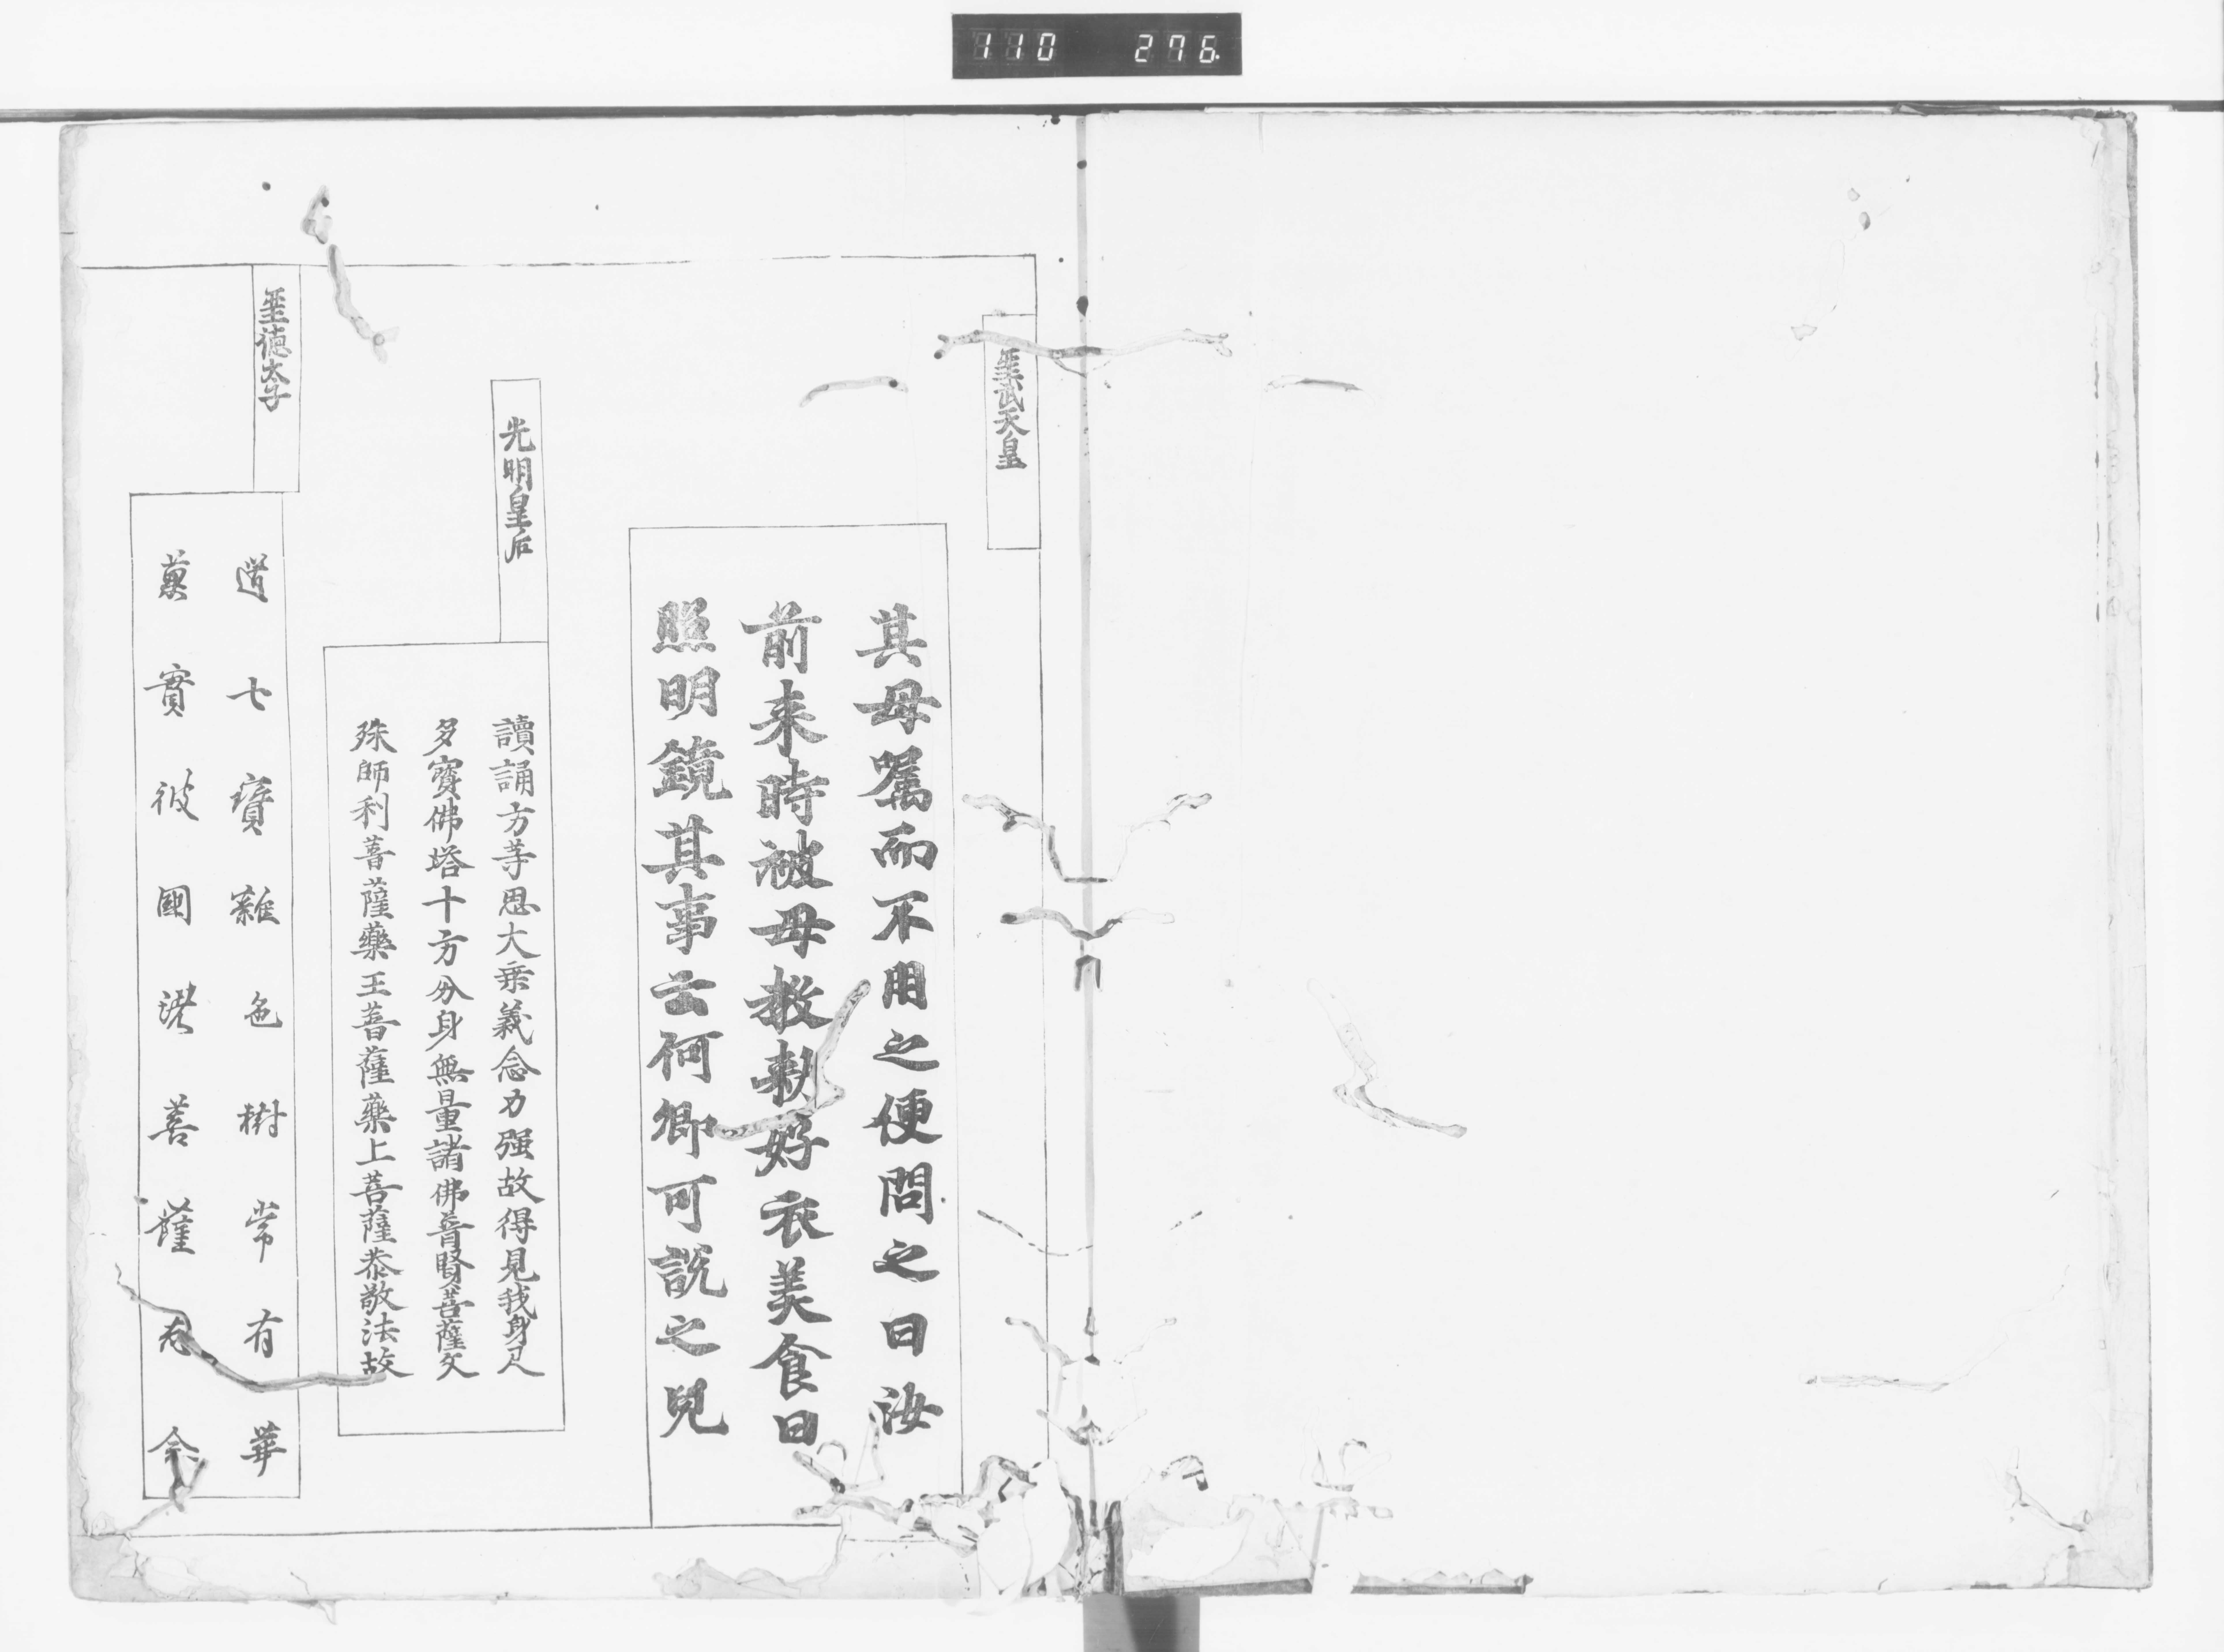 110 276
聖武天皇
其母嘱而不用之便問之曰汝
前来時被母教勅好衣美食曰
照明鏡其事云何卿可説之兒
光明皇后
讀誦方等思大乗義念力强故得見我身及
多寳佛塔十方分身無量諸佛普賢菩薩文
殊師利菩薩藥王菩薩藥上菩薩恭敬法故
聖徳太子
道七寶雜色樹常有華
菓實彼國諸菩薩志